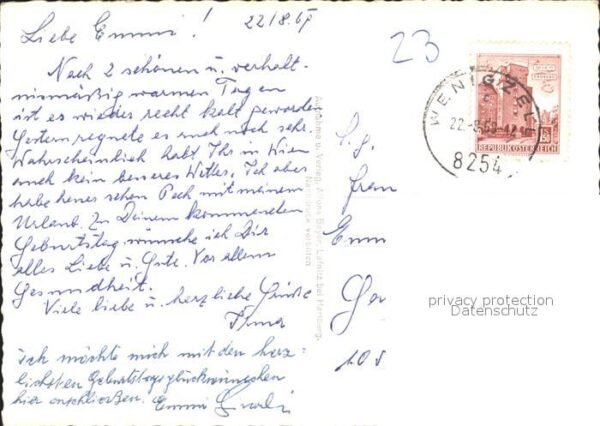 22/8.69
Liebe Emmi!
Nach 2 schönen u. verhält-
nismäßig warmen Tagen
ist es wieder recht kalt geworden
Gestern regnete es auch noch sehr.
Wahrscheinlich habt Ihr in Wien
auch kein besseres Wetter. Ich aber
habe heuer schon Pech mit meinem
Urlaub. Zu Deinem kommenden
Geburtstag wünsche ich Dir
alles Liebe u. Gute. Vor allem
Gesundheit.
Viele liebe u. herzliche Grüße
Ilma
ich möchte mich mit den herz-
lichsten Geburtstagsglückwünschen
hier anschließen. Emmi
Aufnahme u. Verlag bei Hartberg.
Nachdruck verboten
23
WENIGZELL
22.-8.69-12
8254
REPUBLIK ÖSTERREICH
S.g.
Frau
Emm
Ge
10
privacy protection
Datenschutz